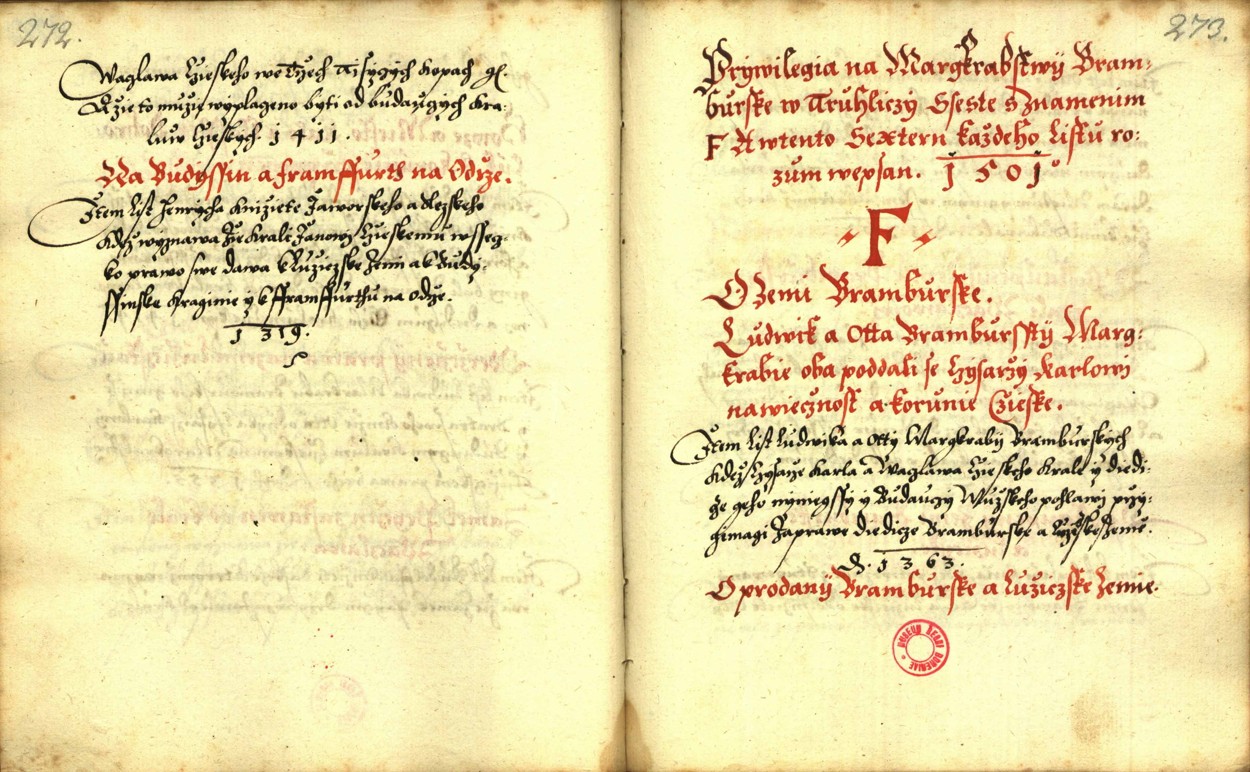 272.
Waglawa Czieskeho we Trzech Tisyczych kopach gr.
A zie to muzy wyplageno byti od budauczych kra-
luw Czieskych. 1411.
Na Budyssin a framffurth na Odrze.
Item list Henrycha knizete Jaworskeho a Slezskeho
kdez wyznawa Ze Krali Janowi Czieskemu wsseg-
ko prawo swe dawa k Luziczske Zemi a k Budy-
ssinske Kraginie y k fframffurthu na Odrze.
1319.
273.
Prywilegia na Margkrabstwy Bram-
burske w Truhliczy Sseste s znamenim
F A w tento Sextern kazdeho listu ro-
zum wepsan. 1501
F
O Zemi Bramburske.
Ludwik a Otta Bramburssty Marg-
krabie oba poddali se Czysarzy Karlowi
na wiecznost a korunie Czieske.
Item list Ludwika a Otty Margkrabij Bramburskych
kdez Czysarze Karla a Waglawa Czieskeho krale y diedi-
cze geho nyniegssy y Budauczy Muzskeho pohlawi przy-
gimagi Za prawe diedicze Bramburske a Luziczske Zemie.
D. 1363.
O prodany Bramburske a Luziczske Zemie.